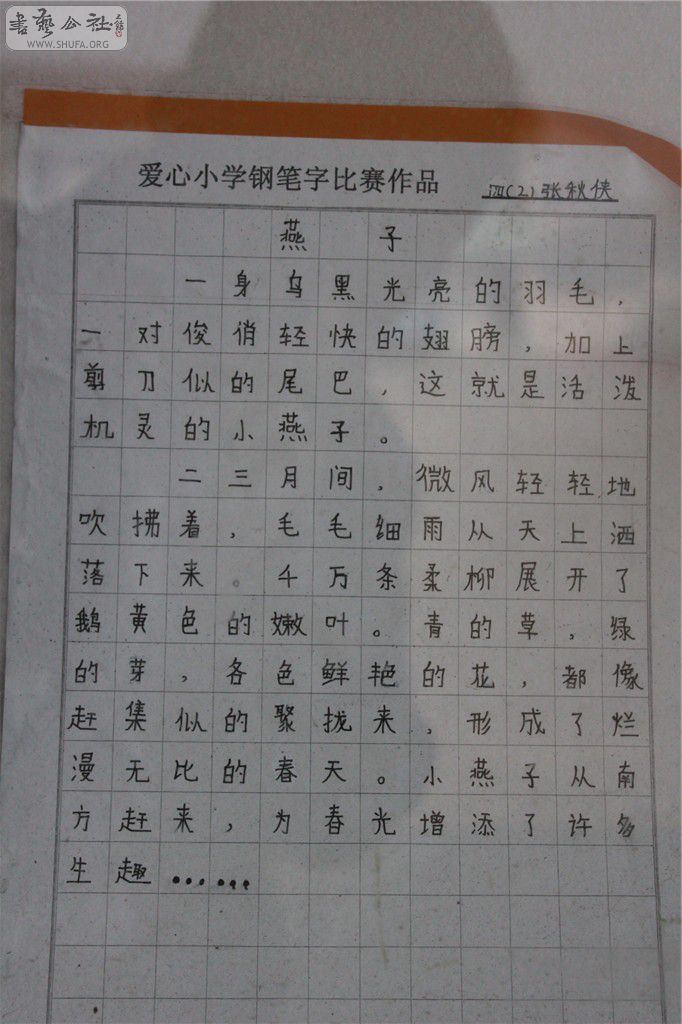 書藝公社
WWW.SHUFA.ORG
爱心小学钢笔字比赛作品 四(2)张秋侠
燕子
一身乌黑光亮的羽毛，
一对俊俏轻快的翅膀，加上
剪刀似的尾巴，这就是活泼
机灵的小燕子。
二三月间，微风轻轻地
吹拂着，毛毛细雨从天上洒
落下来。千万条柔柳展开了
鹅黄色的嫩叶。青的草，绿
的芽，各色鲜艳的花，都像
赶集似的聚拢来，形成了烂
漫无比的春天。小燕子从南
方赶来，为春光增添了许多
生趣……